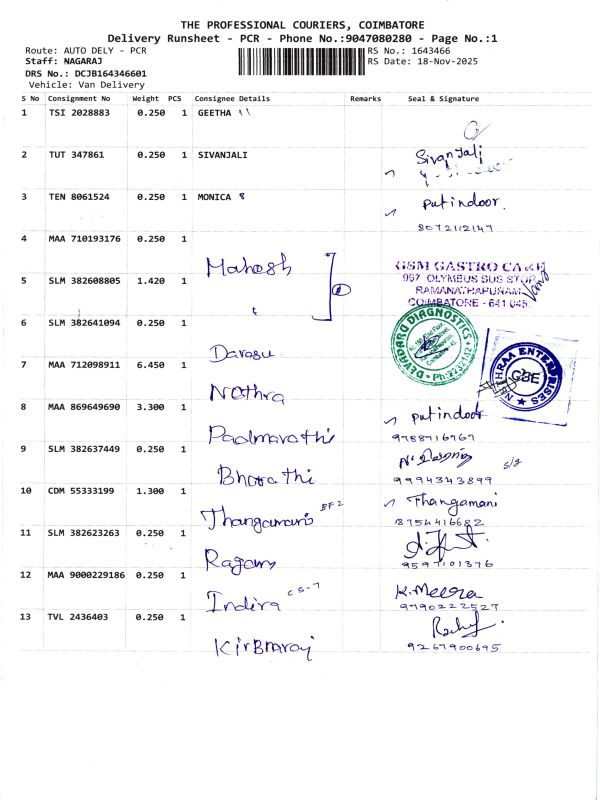 THE PROFESSIONAL COURIERS, COIMBATORE
Delivery Runsheet - PCR - Phone No.:9047080280 - Page No.:1
Route: AUTO DELY - PCR RS No.: 1643466
Staff: NAGARAJ RS Date: 18-Nov-2025
DRS No.: DCJB164346601
Vehicle: Van Delivery
S No Consignment No Weight PCS Consignee Details Remarks Seal & Signature
1 TSI 2028883 0.250 1 GEETHA 11
2 TUT 347861 0.250 1 SIVANJALI Sivanjali
3 TEN 8061524 0.250 1 MONICA 8 put indoor.
8072112147
4 MAA 710193176 0.250 1
Mahesh
GSM GASTRO CARE
957 OLYMBUS BUS STOP
RAMANATHAPURAM
COIMBATORE - 641 045.
5 SLM 382608805 1.420 1
6 SLM 382641094 0.250 1
DEVADARG DIAGNOSTICS
Darasu
NETHRAA ENTERPRISES
7 MAA 712098911 6.450 1
Nathra
8 MAA 869649690 3.300 1 put indoor
Padmavathi 9788716767
9 SLM 382637449 0.250 1
Bharathi 9994343899
10 CDM 55333199 1.300 1 Thangamani
Thangamani BF2 8754416682
11 SLM 382623263 0.250 1
Ragam 9597101376
12 MAA 9000229186 0.250 1 K.Meera
Indira CS-7 9790222527
13 TVL 2436403 0.250 1
Kirbharaj 9267900695